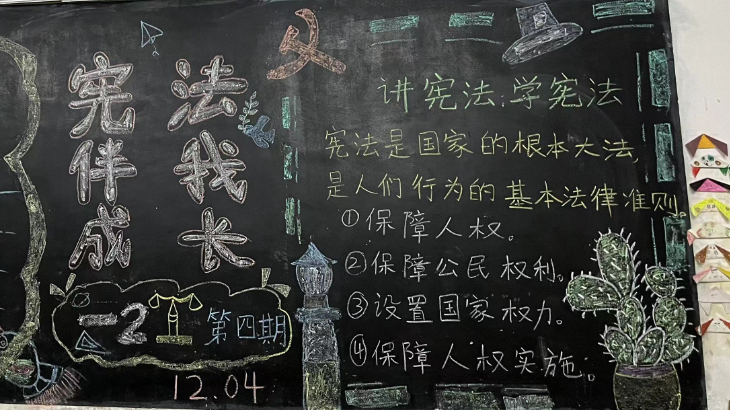 宪法
伴我
成长
一2 第四期
12.04
讲宪法,学宪法
宪法是国家的根本大法,
是人们行为的基本法律准则。
①保障人权。
②保障公民权利。
③设置国家权力。
④保障人权实施。